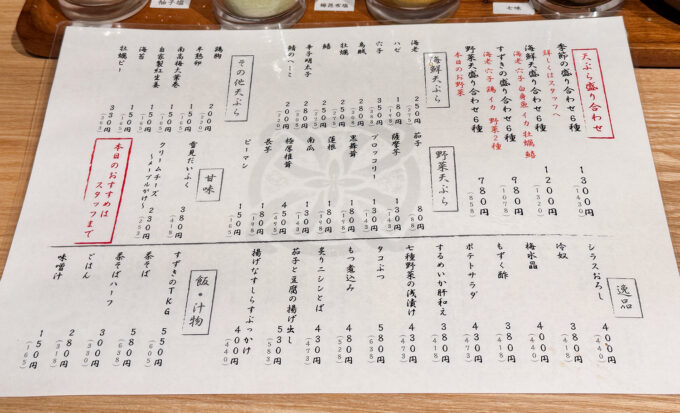 柚子塩
梅昆布塩
七味
天ぷら盛り合わせ
季節の盛り合わせ 1300円 (1430)
詳しくはスタッフへ
海鮮天盛り合わせ6種 1200円 (1320)
海老 穴子 白身魚 イカ 牡蠣 鱚
すずきの盛り合わせ6種 980円 (1078)
海老 穴子 鶏 イカ 野菜2種
野菜天盛り合わせ6種 780円 (858)
本日のお野菜
海鮮天ぷら
海老 250円
ハゼ 180円
穴子 380円
烏賊 200円
牡蠣 250円
鱚 250円
辛子明太子 280円
鱚のへーミ 200円
その他天ぷら
鶏胸 200円
半熟卵 150円
南高梅大葉巻 150円
自家製紅生姜 150円
海苔 150円
牡蠣ビー 330円
野菜天ぷら
茄子 80円
薩摩芋 130円 (143)
ブロッコリー 130円 (143)
黒舞茸 180円 (198)
蓮根 180円 (198)
南瓜 130円 (143)
極厚椎茸 450円
長芋 180円 (198)
ピーマン 150円 (165)
甘味
雪見だいふく 380円 (418)
クリームチーズ 230円 (253)
〜メープルがけ〜
本日のおすすめは
スタッフまで
逸品
シラスおろし 400円 (440)
冷奴 380円 (418)
梅水晶 400円 (440)
もずく酢 380円 (418)
ポテトサラダ 430円 (473)
するめいか肝和え 380円 (418)
七種野菜の浅漬け 430円 (473)
タコぶつ 580円 (638)
もつ煮込み 480円 (528)
炙りニシンとば 430円
茄子と豆腐の揚げ出し 530円 (583)
揚げなすしらすぶっかけ 400円 (440)
飯・汁物
すずきのTKG 550円
茶そば 580円 (638)
茶そばハーフ 300円
ごはん 280円
味噌汁 150円 (165)